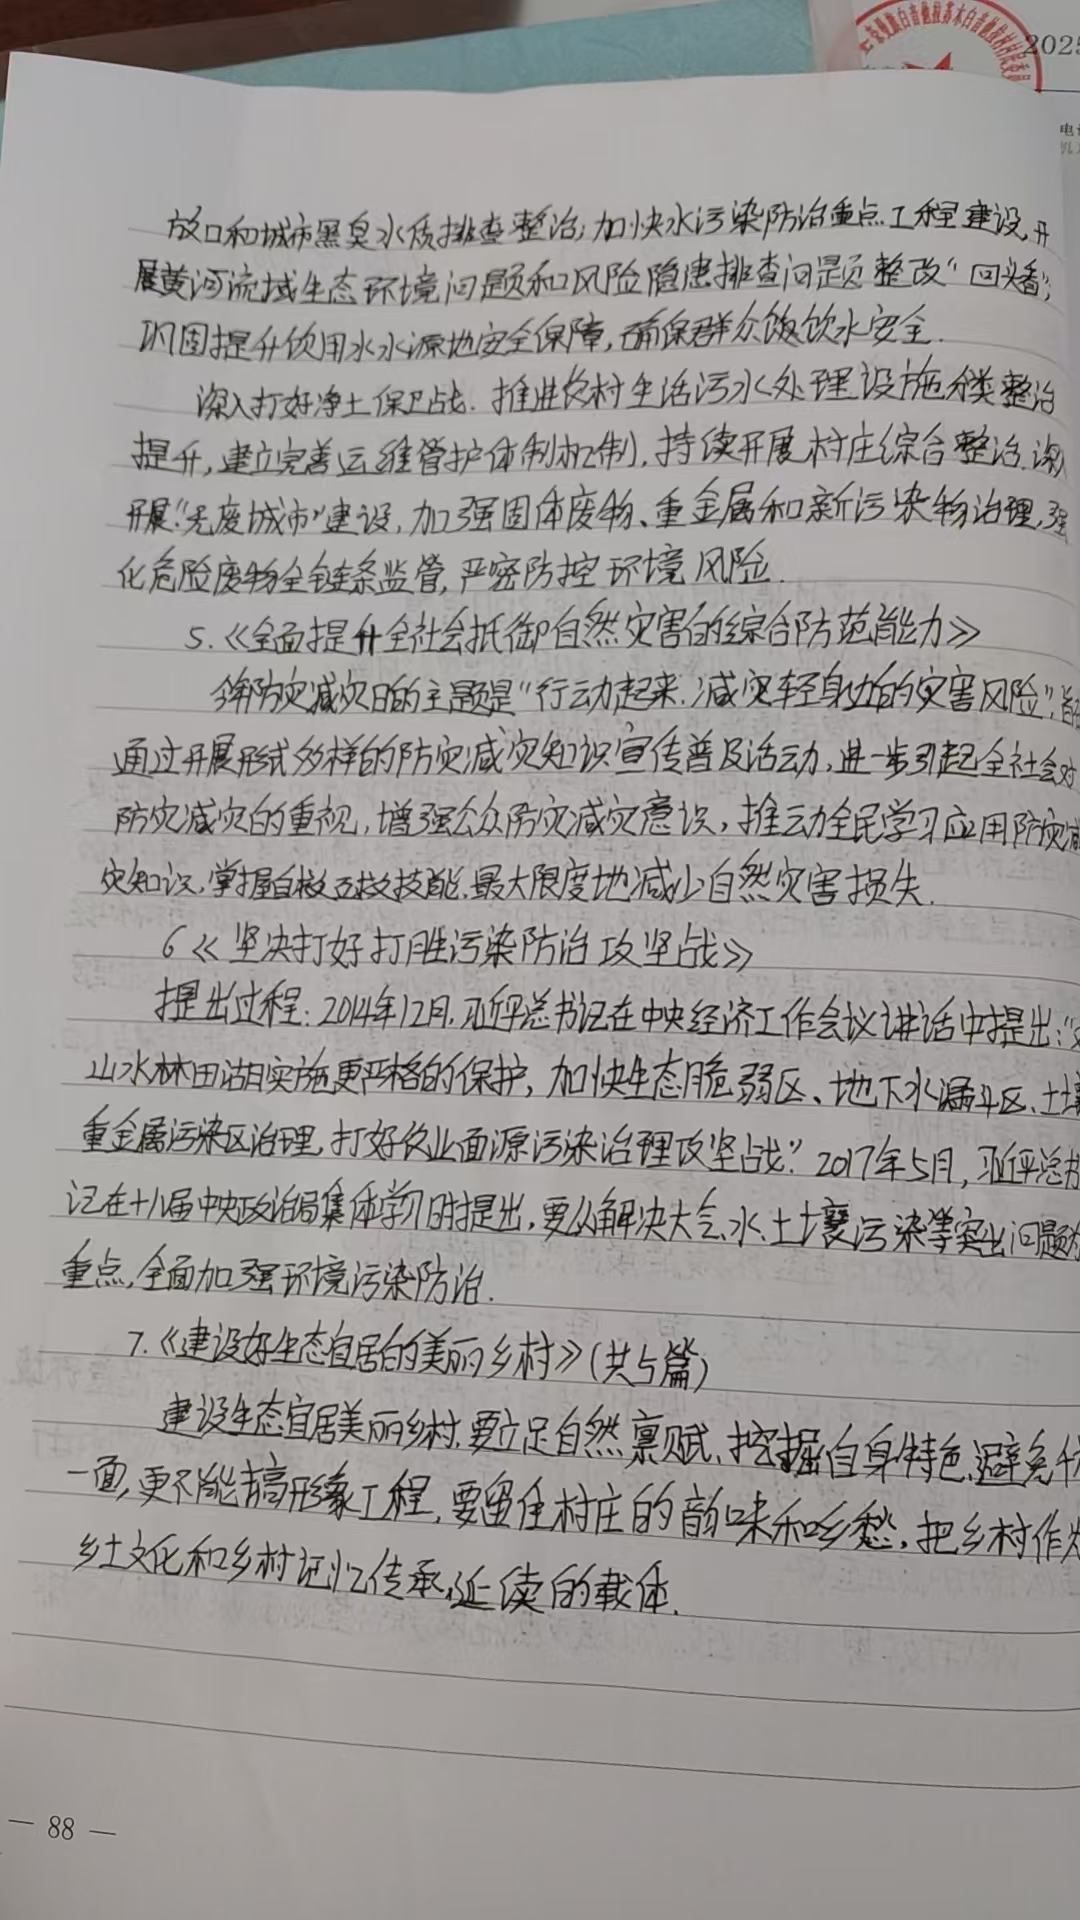 2025
电
放口和城市黑臭水质排查整治,加快水污染防治重点工程建设,开
展黄河流域生态环境问题和风险隐患排查问题整改“回头看”,
巩固提升饮用水水源地安全保障,确保群众饮水安全.
深入打好净土保卫战.推进农村生活污水处理设施分类整治
提升,建立完善运维管护体制机制,持续开展村庄综合整治.深入
开展“无废城市”建设,加强固体废物、重金属和新污染物治理,强
化危险废物全链条监管,严密防控环境风险.
5.《全面提升全社会抵御自然灾害的综合防范能力》
今年防灾减灾日的主题是“行动起来.减灾轻身边的灾害风险”,旨在
通过开展形式多样的防灾减灾知识宣传普及活动,进一步引起全社会对
防灾减灾的重视,增强公众防灾减灾意识,推动全民学习应用防灾减
灾知识,掌握自救互救技能,最大限度地减少自然灾害损失.
6《坚决打好打胜污染防治攻坚战》
提出过程:2014年12月,习近平总书记在中央经济工作会议讲话中提出:“对
山水林田湖实施更严格的保护,加快生态脆弱区、地下水漏斗区、土壤
重金属污染区治理,打好农业面源污染治理攻坚战.”2017年5月,习近平总书
记在十八届中央政治局集体学习时提出,要以解决大气、水、土壤污染等突出问题为
重点,全面加强环境污染防治.
7.《建设好生态宜居的美丽乡村》(共5篇)
建设生态宜居美丽乡村,要立足自然禀赋、挖掘自身特色,避免千
一面,更不能搞形象工程,要留住村庄的韵味和乡愁,把乡村作为
乡土文化和乡村记忆传承,延续的载体.
— 88 —